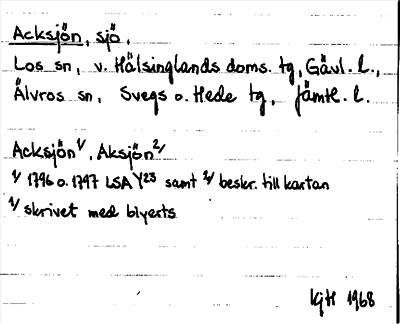 Acksjön, sjö,
Los sn, v. Hälsinglands doms. tg, Gävl. l.,
Älvros sn, Svegs o. Hede tg, Jämtl. l.
Acksjön 1/, Aksjön 2/
1/ 1796 o. 1797 LSA Y23 samt 2/ beskr. till kartan
1/ skrivet med blyerts
KjH 1968